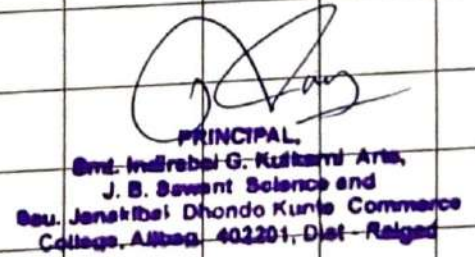 PRINCIPAL,
Smt. Indirabai G. Kulkarni Arts,
J. B. Sawant Science and
Sau. Janakibai Dhondo Kunte Commerce
College, Alibag. 402201, Dist - Raigad